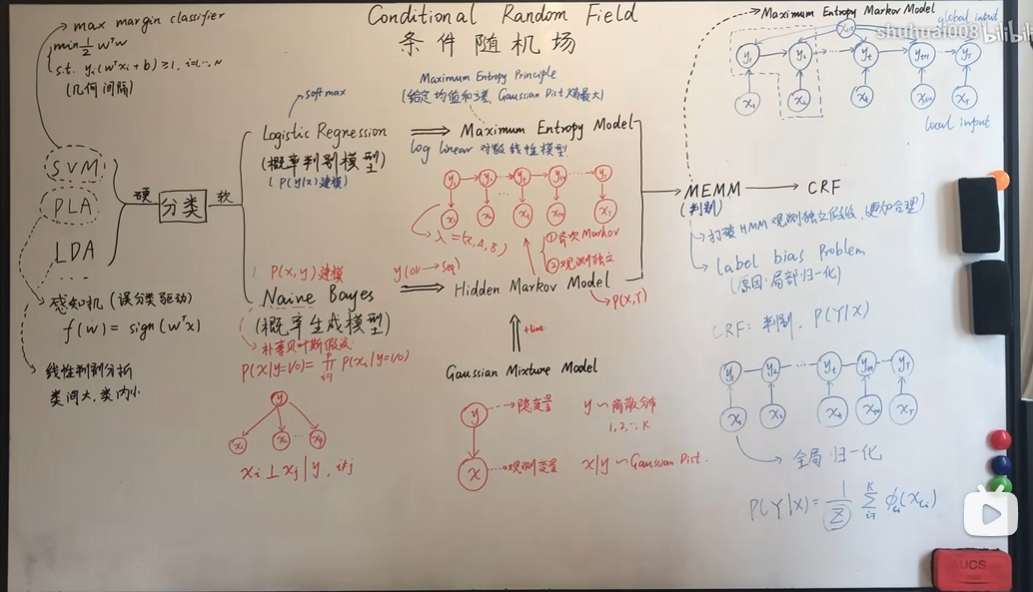 Conditional Random Field
条件随机场
max margin classifier
min ½ wᵀw
s.t. yᵢ(wᵀxᵢ+b) ≥ 1, i=1,…,N
(几何间隔)
SVM
PLA
LDA
...
硬
分类
软
感知机 (误分类驱动)
f(w) = sign(wᵀx)
线性判别分析
类间大, 类内小
softmax
Logistic Regression
(概率判别模型)
(P(y|x)建模)
Maximum Entropy Principle
(给定均值和方差, Gaussian Dist 熵最大)
Maximum Entropy Model
log linear 对数线性模型
y₁ y₂ yₜ
x₁
λ = (π, A, B)
① 齐次Markov
② 观测独立
P(x,y)建模
Naive Bayes
(概率生成模型)
朴素贝叶斯假设
y
x₁
xᵢ ⊥ xⱼ | y, i≠j
Hidden Markov Model
P(X,Y)
+time
Gaussian Mixture Model
y
隐变量
y ~ 离散分布
1,2,…,K
x
观测变量
x|y ~ Gaussian Dist.
Maximum Entropy Markov Model
global input
shuhuai008
bilibili
local input
MEMM
(判别)
CRF
打破HMM观测独立假设
更加合理)
Label bias Problem
(原因:局部归一化)
CRF: 判别, P(Y|X)
全局归一化
P(Y|X) = 1/Z
UCS